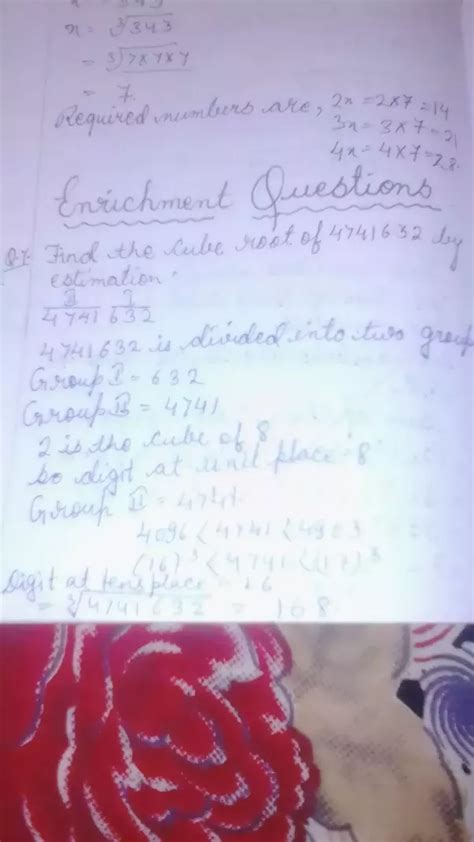 x = ∛343
= ∛7×7×7
= 7.
Required numbers are, 2x = 2×7 = 14
3x = 3×7 = 21
4x = 4×7 = 28.
Enrichment Questions
Find the cube root of 4741632 by
estimation.
II I
4741 632
4741632 is divided into two group
Group I = 632
Group II = 4741
2 is the cube of 8
So digit at unit place = 8
Group II = 4741
4096 < 4741 < 4903
(16)³ < 4741 < (17)³
Digit at tens place = 16
= ∛4741632 = 168